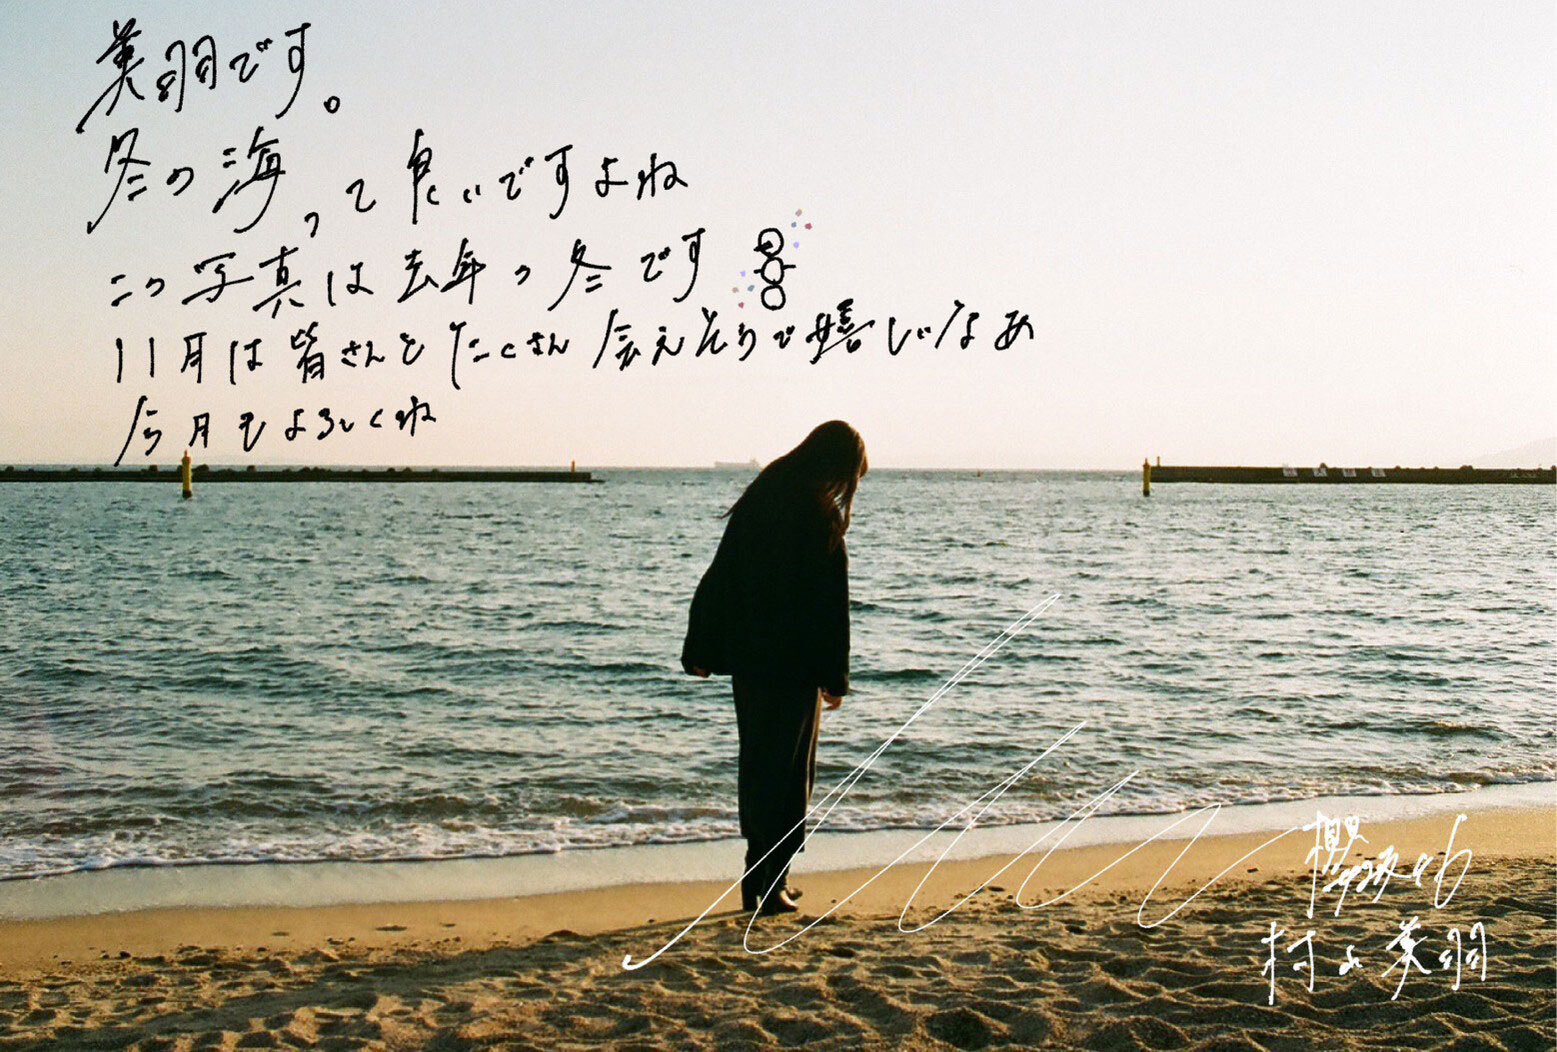 美羽です。
冬の海って良いですよね
この写真は去年の冬です
11月は皆さんとたくさん会えそうで嬉しいなあ
今月もよろしくね
櫻坂46
村山美羽